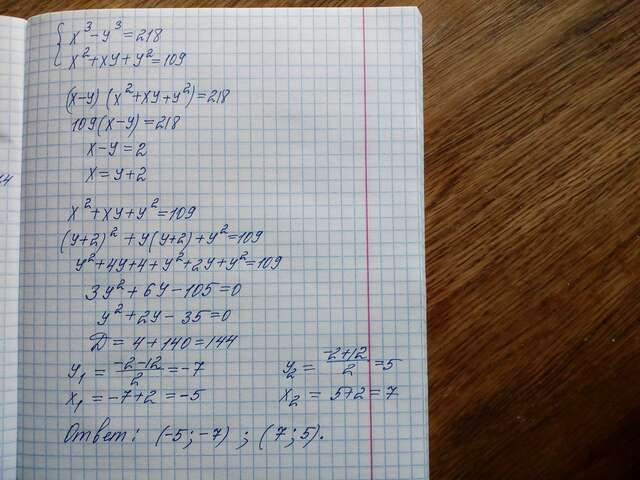 { x³ - y³ = 218
x² + xy + y² = 109
(x-y)(x² + xy + y²) = 218
109(x-y) = 218
x - y = 2
x = y + 2
x² + xy + y² = 109
(y+2)² + y(y+2) + y² = 109
y² + 4y + 4 + y² + 2y + y² = 109
3y² + 6y - 105 = 0
y² + 2y - 35 = 0
D = 4 + 140 = 144
y₁ = (-2-12)/2 = -7 y₂ = (-2+12)/2 = 5
x₁ = -7+2 = -5 x₂ = 5+2 = 7
Ответ: (-5; -7) ; (7; 5).